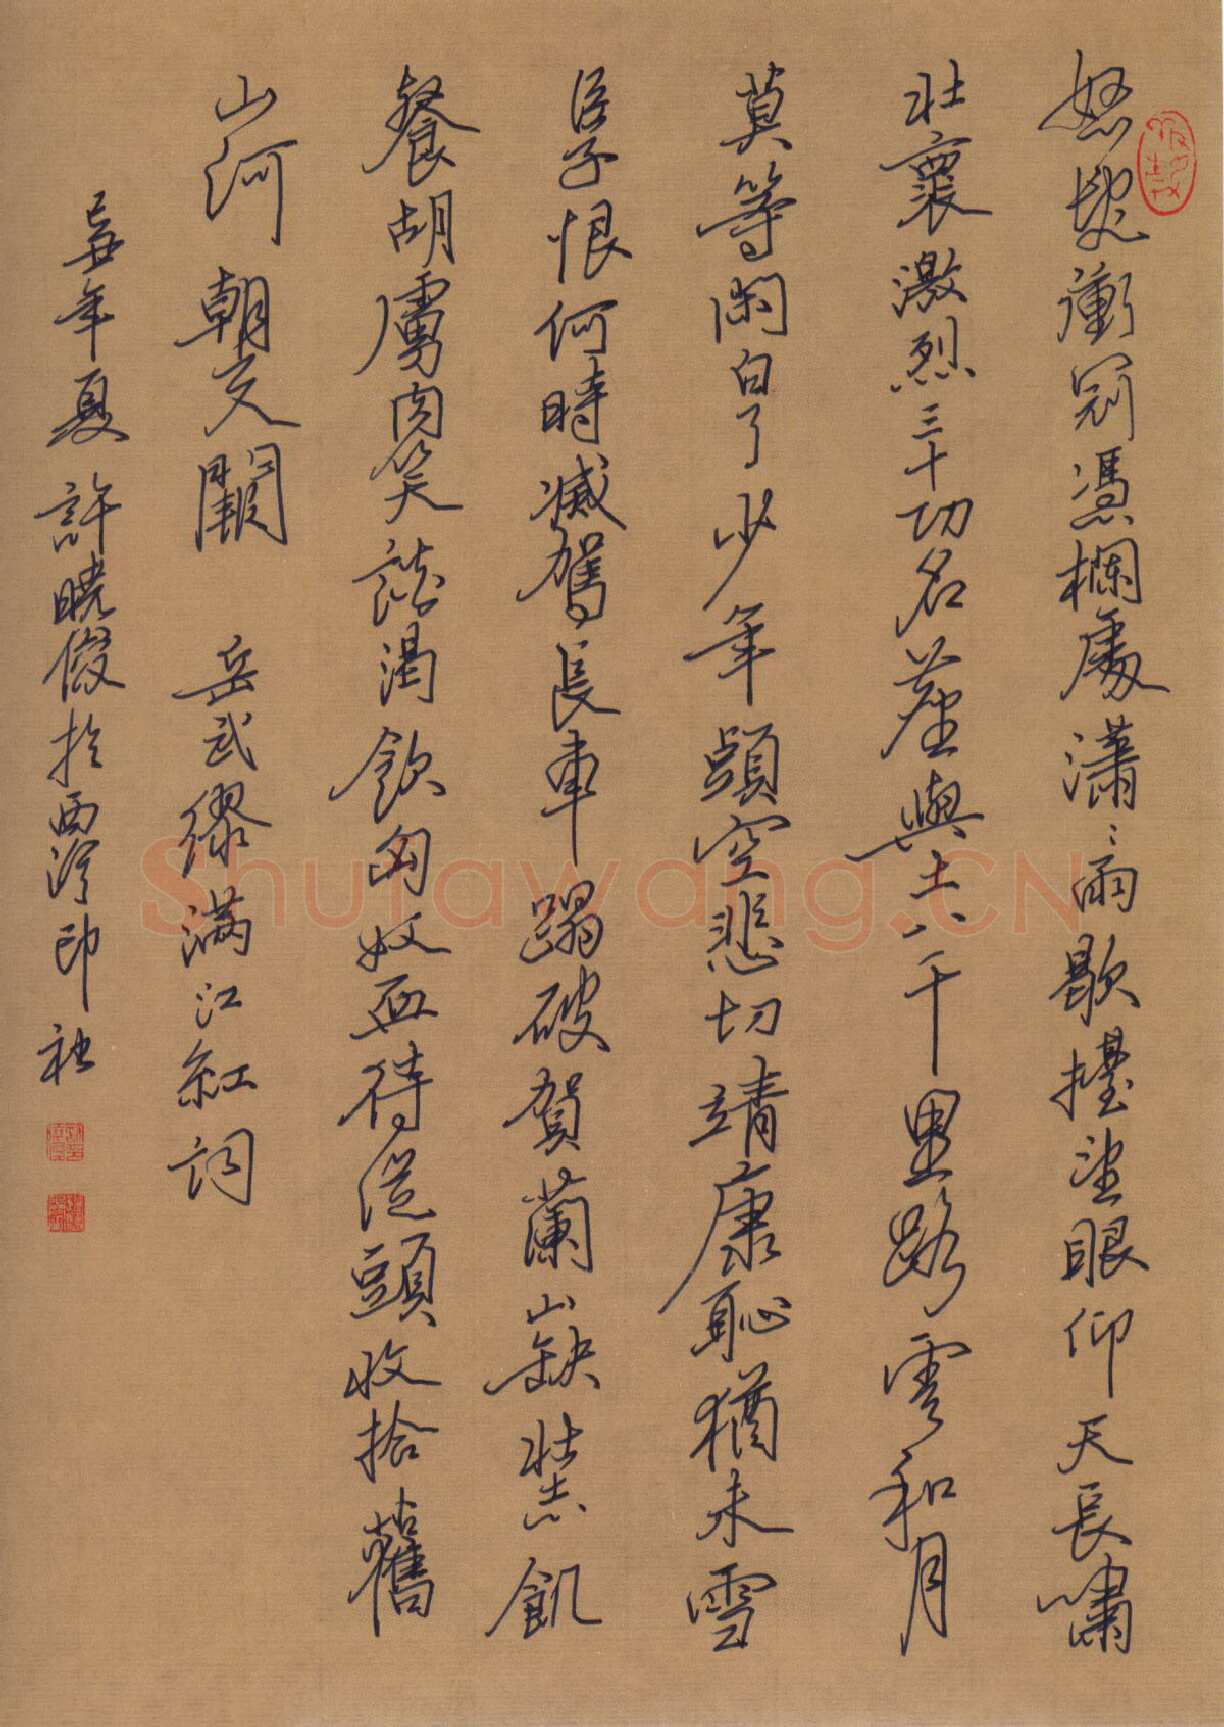 怒髮衝冠憑欄處瀟〻雨歇擡望眼仰天長嘯
壯懷激烈三十功名塵與土八千里路雲和月
莫等閑白了少年頭空悲切靖康恥猶未雪
臣子恨何時滅駕長車蹋破賀蘭山缺壯志飢
餐胡虜肉笑談渴飲匈奴血待從頭收拾舊
山河朝天闕 岳武穆滿江紅詞
己丑年夏 許曉俊於西泠印社
Shufawang.CN